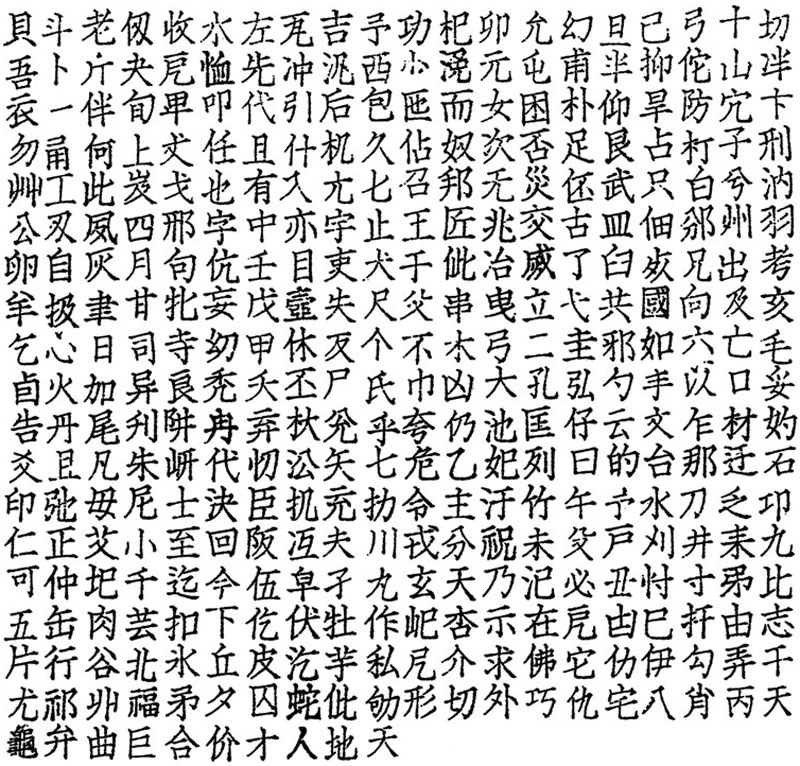 貝斗老伋收水左瓦吉予功杞卯允幻旦己弓十切
吾卜斤夬戹恤先冲汎西小浼元屯甫半抑佗山泮
衣一伴旬甲叩代引后包匝而女困朴仰旱防宂卞
勿甬何上丈任且什机久佔奴次否足艮占朾子刑
艸工此岌戈也有入亢七召邦无災伾武只白兮汭
公刃夙四邢字中亦宇止王匠兆交古皿佃邠州羽
卵自灰月句伉壬目吏犬于仳冶威了臼㚣兄出考
牟扱聿甘牝妄戊壹失尺父串曳立弋共國向及亥
乞心日司寺幼甲休叐个不木弓二圭邪如六亡毛
卣火加异良禿夭丕尸氏巾凶大孔弘勺手以口妥
告丹尾刋阱冉弃杕兌乎夸仍池匡仔云文乍材妁
爻且凡朱岍代忉㳂矢七危乙妃列曰的台那迂石
印弛毋尼士決臣扤充扐令主汙竹午予水刀乏卭
仁正艾小至回阪冱夫川戎分祝未殳戶刈井耒九
可仲圯千迄今伍阜孑丸玄天乃汜必丑忖寸弟比
五缶肉芸扣下仡伏牡作屺杏示在戹甴巳扞由志
片行谷北氷丘皮汔芋私凡介求佛它仂伊勾弄千
尤祁丱福矛夕囚蛇仳劬形切外巧仇宅八肖丙天
龜弁曲巨合价才人地天